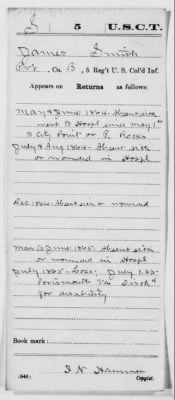 S | 5 | U.S.C.T.
James Smith
Pvt, Co. B, 5 Reg't U. S. Col'd Inf.
Appears on Returns as follows:
May & June 1864 - Absent sick
sent to Hospl since May 1st
to City Point or P. Rocks
July & Aug 1864 - Absent sick
or wounded in Hospl
Dec 1864 - Absent sick or wounded
Mar to June 1865 - Absent sick
or wounded in Hospl
July 1865 - Loss: July 1, 65
Portsmouth Va Disch'd
for disability
Book mark:
(546)
Copyist.